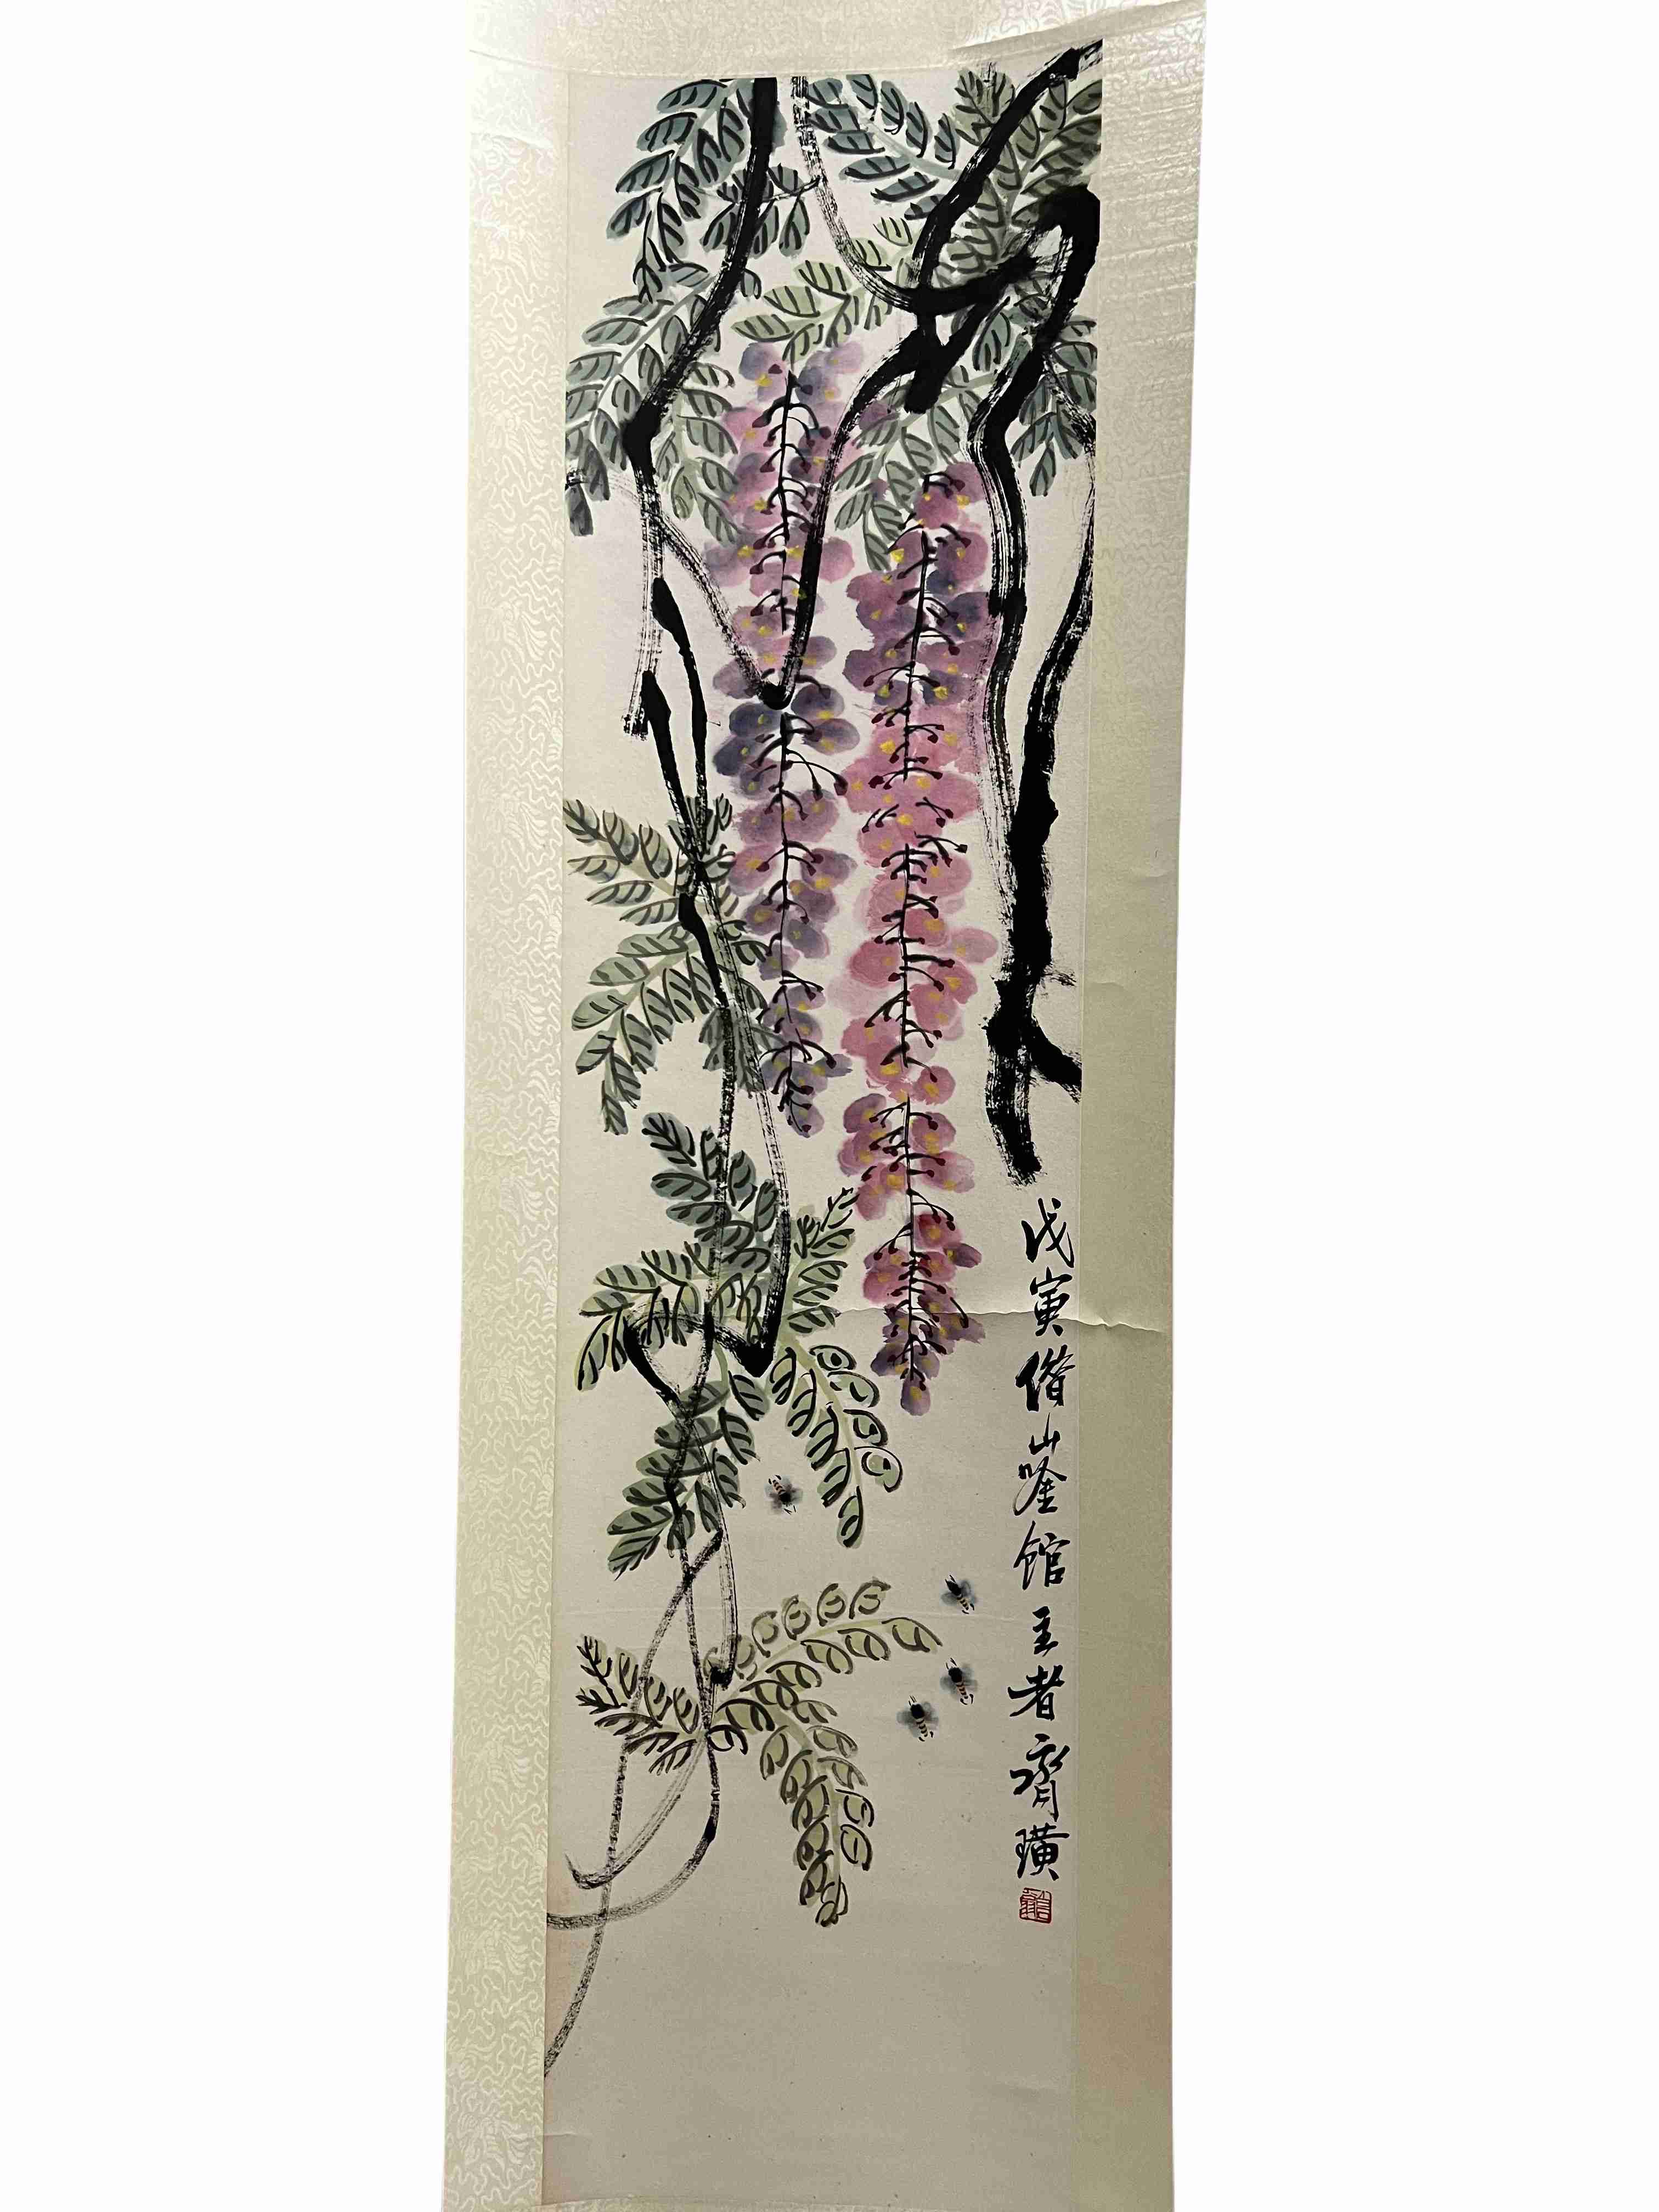 戊寅借山唫馆主者齊璜